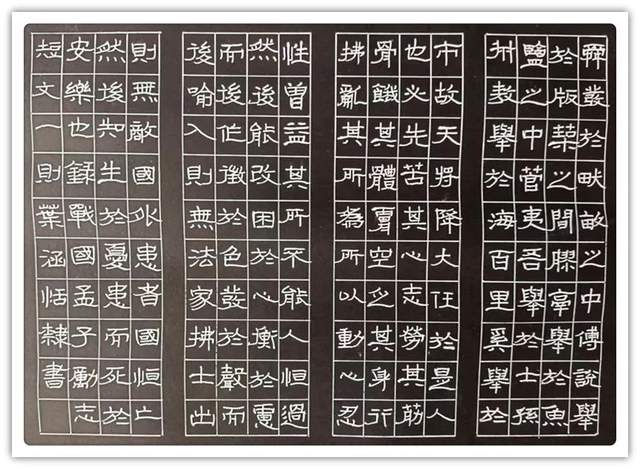 舜發於畎畝之中傅說舉
於版築之間膠鬲舉於魚
鹽之中管夷吾舉於士孫
叔敖舉於海百里奚舉於
市故天將降大任於是人
也必先苦其心志勞其筋
骨餓其體膚空乏其身行
拂亂其所為所以動心忍
性曾益其所不能人恒過
然後能改困於心衡於慮
而後作徵於色發於聲而
後喻入則無法家拂士出
則無敵國外患者國恒亡
然後知生於憂患而死於
安樂也錄戰國孟子勵志
短文一則葉涵恬隸書